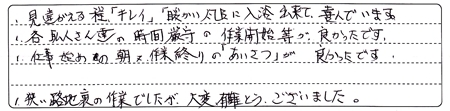 1. 見違がえる程「キレイ」「暖かい凡呂に入浴出来て、喜んでいます
1. 各取人さん達の時間厳守の作業開始等が、良かったです.
1. 仕事始めの朝と作業終りの「あいさつ」が良かったです.
1. 狭い路地裏の作業でしたが、大変有難とうございました。